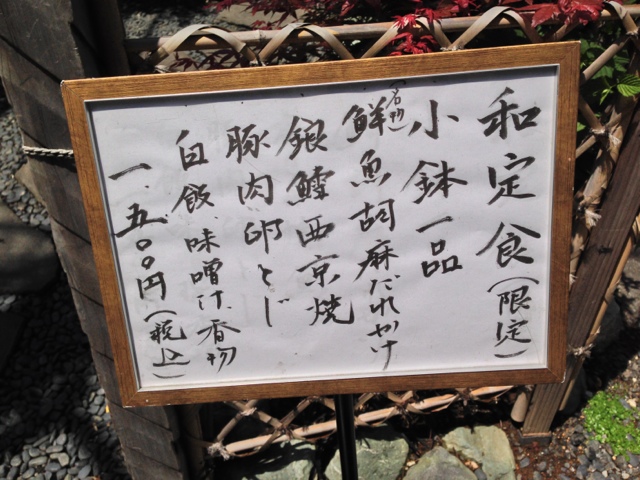 和定食(限定)
小鉢一品
(名物)鮮魚胡麻だれかけ
銀鱈西京焼
豚肉卵とじ
白飯、味噌汁、香物
一、五〇〇円(税込)